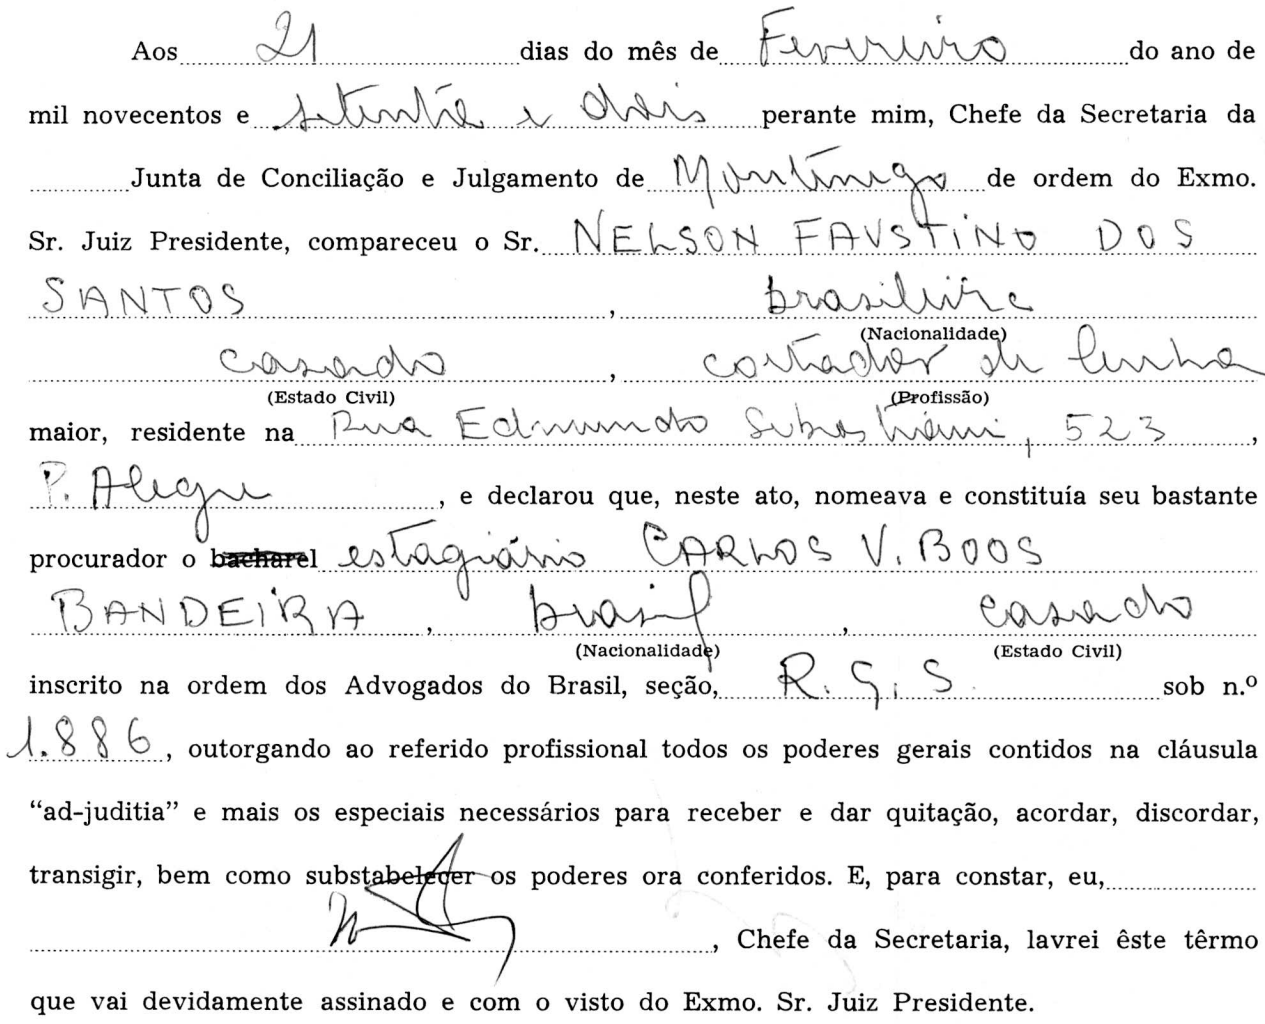 Aos 21 dias do mês de Fevereiro do ano de
mil novecentos e setenta e dois perante mim, Chefe da Secretaria da
Junta de Conciliação e Julgamento de Montenego de ordem do Exmo.
Sr. Juiz Presidente, compareceu o Sr. NELSON FAUSTINO DOS
SANTOS, brasileiro
(Nacionalidade)
casado, cortador de lenha
(Estado Civil) (Profissão)
maior, residente na Rua Edmundo Sebastiani, 523,
P. Alegre, e declarou que, neste ato, nomeava e constituía seu bastante
procurador o bacharel estagiário CARLOS V. BOOS
BANDEIRA, brasil, casado
(Nacionalidade) (Estado Civil)
inscrito na ordem dos Advogados do Brasil, seção, R.G.S. sob n.º
1.886, outorgando ao referido profissional todos os poderes gerais contidos na cláusula
“ad-juditia” e mais os especiais necessários para receber e dar quitação, acordar, discordar,
transigir, bem como substabelecer os poderes ora conferidos. E, para constar, eu,
, Chefe da Secretaria, lavrei êste têrmo
que vai devidamente assinado e com o visto do Exmo. Sr. Juiz Presidente.